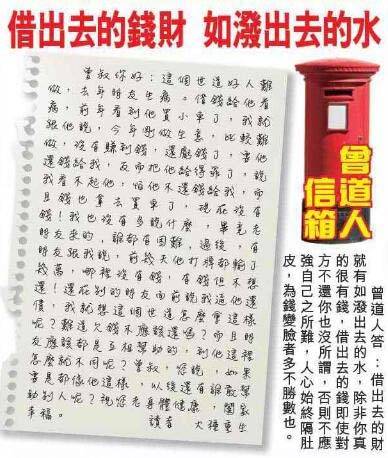 借出去的錢財 如潑出去的水
曾叔你好：這個世道好人難
做，去年朋友生病。借錢給他看
病，前年看到他買小車了，我就
跟他說，今年剛做生意，比較難
做，沒有賺到錢，還虧錢了，害他
還錢給我，反而把他給得罪了，說
我看不起他，怕他不還錢給我，而
且錢也拿去買車了，現在沒有
錢！我也沒有多說什麼，畢竟老
朋友來的，誰都有困難，過後，有
朋友跟我說，前幾天他打牌都輸了
幾萬，哪裡沒有錢，有錢也不想
還！還在別的朋友面前說我逼他還
債，我就想這個世道怎麼會這樣
呢？難道欠錢不應該還嗎？而且朋
友應該都是互相幫助的，到他這裡
怎麼就不同呢？曾叔，您說，如果
都像他這樣，以後還有誰敢幫
助別人呢？祝您老身體健康，闔家
幸福。
讀者 大福重生
曾道人
信箱
曾道人答：借出去的財
就有如潑出去的水，除非你真
的很有錢，借出去的錢即使對
方不還你也沒所謂，否則不應
強自己之所難，人心始終隔肚
皮，為錢變臉者多不勝數也。